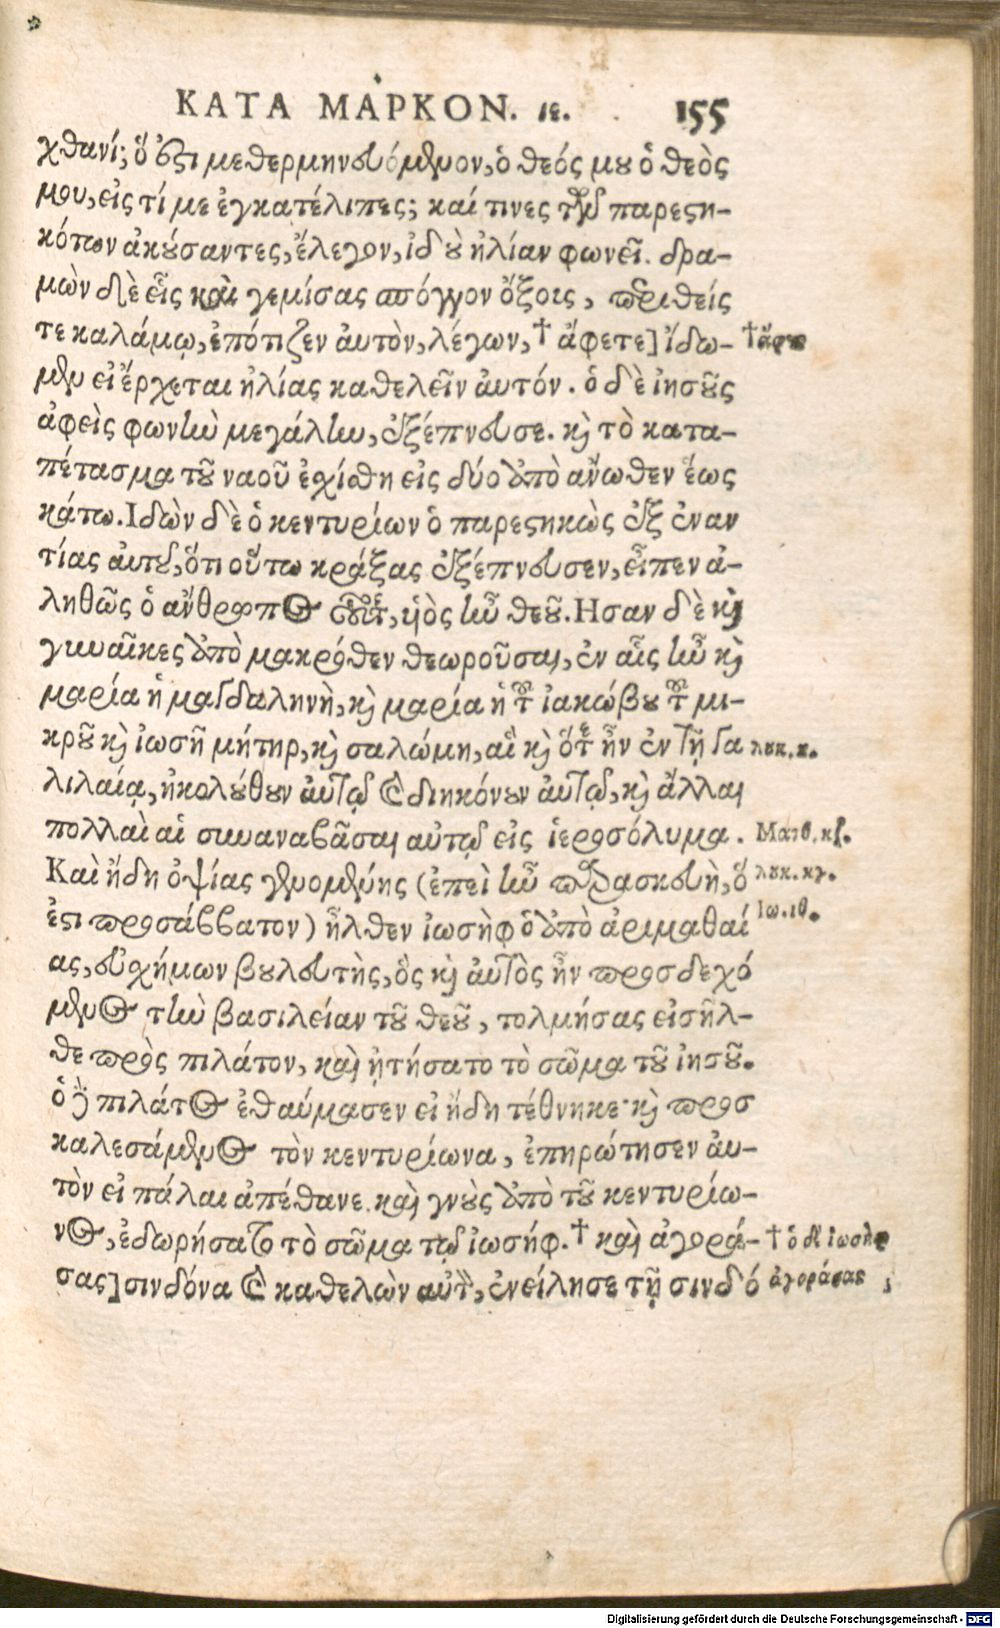 ΚΑΤΑ ΜΑΡΚΟΝ. ιε. 155
χθανί; ὅ ἐϛι μεθερμηνευόμενον, ὁ θεός μου ὁ θεὸς
μου, εἰς τί με ἐγκατέλιπες; καί τινες τῶν παρεϛη-
κότων ἀκούσαντες, ἔλεγον, ἰδοὺ ἠλίαν φωνεῖ. δρα-
μὼν δὲ εἷς καὶ γεμίσας σπόγγον ὄξοις, περιθείς
τε καλάμῳ, ἐπότιζεν ἀυτὸν, λέγων, † ἄφετε] ἴδω- † ἄφες
μεν εἰ ἔρχεται ἠλίας καθελεῖν ἀυτόν. ὁ δὲ ἰησοῦς
ἀφεὶς φωνὴν μεγάλην, ἐξέπνευσε. καὶ τὸ κατα-
πέτασμα τοῦ ναοῦ ἐχίσθη εἰς δύο ἀπὸ ἄνωθεν ἕως
κάτω. Ιδὼν δὲ ὁ κεντυρίων ὁ παρεϛηκὼς ἐξ ἐναν
τίας ἀυτοῦ, ὅτι οὕτω κράξας ἐξέπνευσεν, εἶπεν ἀ-
ληθῶς ὁ ἄνθρωπος οὗτος, ὑὸς ἦν θεοῦ. Ησαν δὲ καὶ
γυναῖκες ἀπὸ μακρόθεν θεωροῦσαι, ἐν αἷς ἦν καὶ
μαρία ἡ μαγδαληνὴ, καὶ μαρία ἡ τοῦ ἰακώβου τοῦ μι-
κροῦ καὶ ἰωσῆ μήτηρ, καὶ σαλώμη, αἳ καὶ ὅτε ἦν ἐν τῇ γα λουκ. η.
λιλαίᾳ, ἠκολούθουν ἀυτῷ καὶ διηκόνουν ἀυτῷ, καὶ ἄλλαι
πολλαὶ αἱ συναναβᾶσαι αὐτῷ εἰς ἱεροσόλυμα. Ματθ. κζ.
Καὶ ἤδη ὀψίας γενομένης (ἐπεὶ ἦν παρασκευὴ, ὅ λουκ. κγ.
ἐϛι προσάββατον) ἦλθεν ἰωσὴφ ὁ ἀπὸ ἀριμαθαί Ιω. ιθ.
ας, εὐχήμων βουλευτὴς, ὃς καὶ αὐτὸς ἦν προσδεχό
μενος τὴν βασιλείαν τοῦ θεοῦ, τολμήσας εἰσῆλ-
θε πρὸς πιλάτον, καὶ ᾐτήσατο τὸ σῶμα τοῦ ἰησοῦ.
ὁ δὲ πιλάτος ἐθαύμασεν εἰ ἤδη τέθνηκε· καὶ προσ
καλεσάμενος τὸν κεντυρίωνα, ἐπηρώτησεν ἀυ-
τὸν εἰ πάλαι ἀπέθανε. καὶ γνοὺς ἀπὸ τοῦ κεντυρίω-
νος, ἐδωρήσατο τὸ σῶμα τῷ ἰωσήφ. † καὶ ἀγορά- † ὁ δὲ ἰωσὴφ
σας] σινδόνα καὶ καθελὼν αὐτὸν, ἐνείλησε τῇ σινδό ἀγοράσας
Digitalisierung gefördert durch die Deutsche Forschungsgemeinschaft - DFG